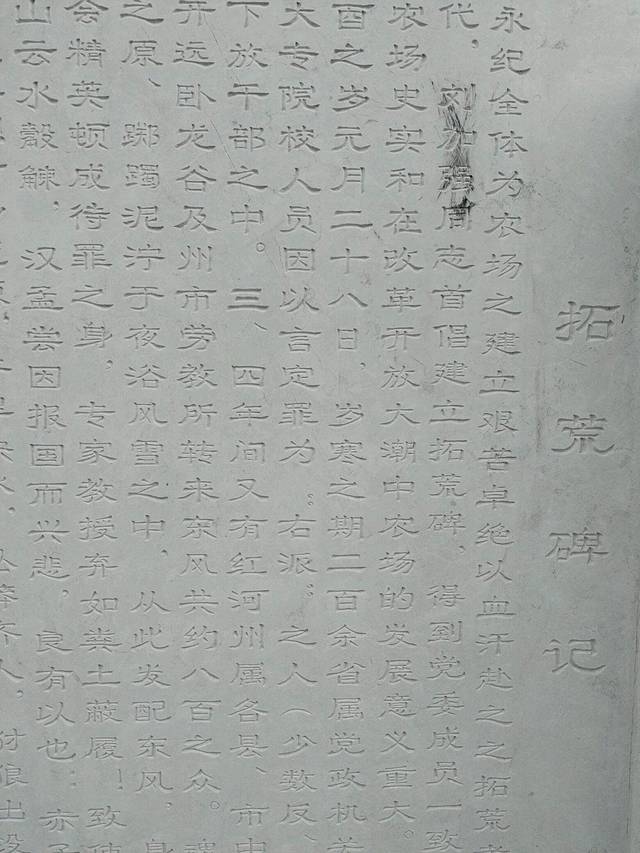 拓荒碑记
永纪全体为农场之建立艰苦卓绝以血汗赴之之拓荒者
代，刘加强同志首倡建立拓荒碑，得到党委成员一致
农场史实和在改革开放大潮中农场的发展意义重大。
酉之岁元月二十八日，岁寒之期二百余省属党政机关
大专院校人员因以言定罪为“右派”之人（少数反、
下放干部之中。三、四年间又有红河州属各县、市中
开远卧龙谷及州市劳教所转来东风共约八百之众。
之原、踯躅泥泞于夜浴风雪之中，从此发配东风，身
会精英顿成待罪之身，专家教授弃如粪土蔽履！致使
山云水觳觫，汉孟尝因报国而兴悲，良有以也：亦
豺狼出没